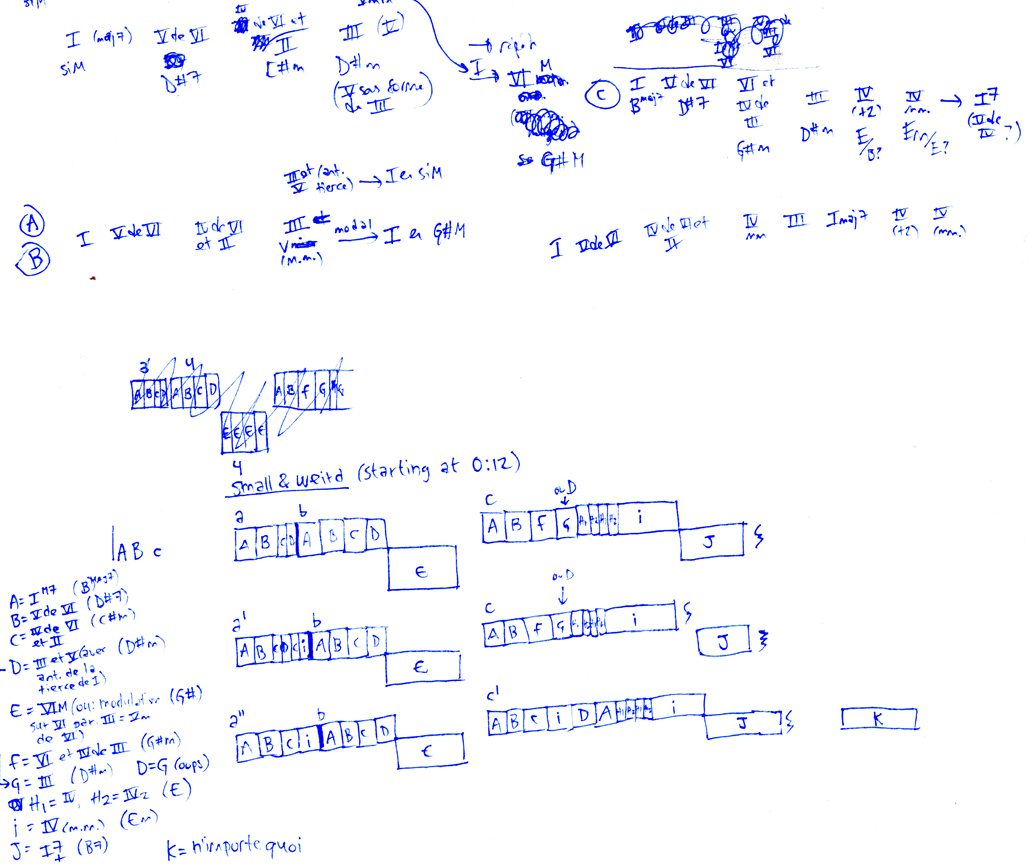 siM
I (maj7) V de VI de VI et II III (V)
siM D#7 C#m D#m
(V sous forme de III)
→ répèt
I → VI M
G# M
C I V de VI VI et IV de III III IV (+2) IV m.m. → I7 (V de IV?)
Bmaj7 D#7 G#m D#m E/B? Em/E?
III et V (ant. tierce) → I en siM
A
B
I V de VI IV de VI et II III et V (m.m.) modal → I en G#M
I V de VI IV de VI et II IV mm III Imaj7 IV (+2) IV (mm.)
3' 4
A B C D A B C D
A B F G
E E E E
4
Small & weird (starting at 0:12)
a b
A B C D A B C D
E
c ou D
A B F G H1 H2 H1 H2 i
J
a' b
A B C D C i A B C D
E
c ou D
A B F G i
J
a'' b
A B C i A B C D
E
c'
A B C i D A H1 H2 H1 H2 i
J
K
A B C
A = IM7 (Bmaj7)
B = V de VI (D#7)
C = IV de VI et II (C#m)
D = III et V (avec ant. de la tierce de I) (D#m)
E = VI M (ou: modulation sur VI par III = Vm de VI) (G#)
F = VI et IV de III (G#m)
→ G = III (D#m) D=G (oups)
H1 = IV, H2 = IV2 (E)
i = IV (m.m.) (Em)
J = I7 (B7)
K = n'importe quoi